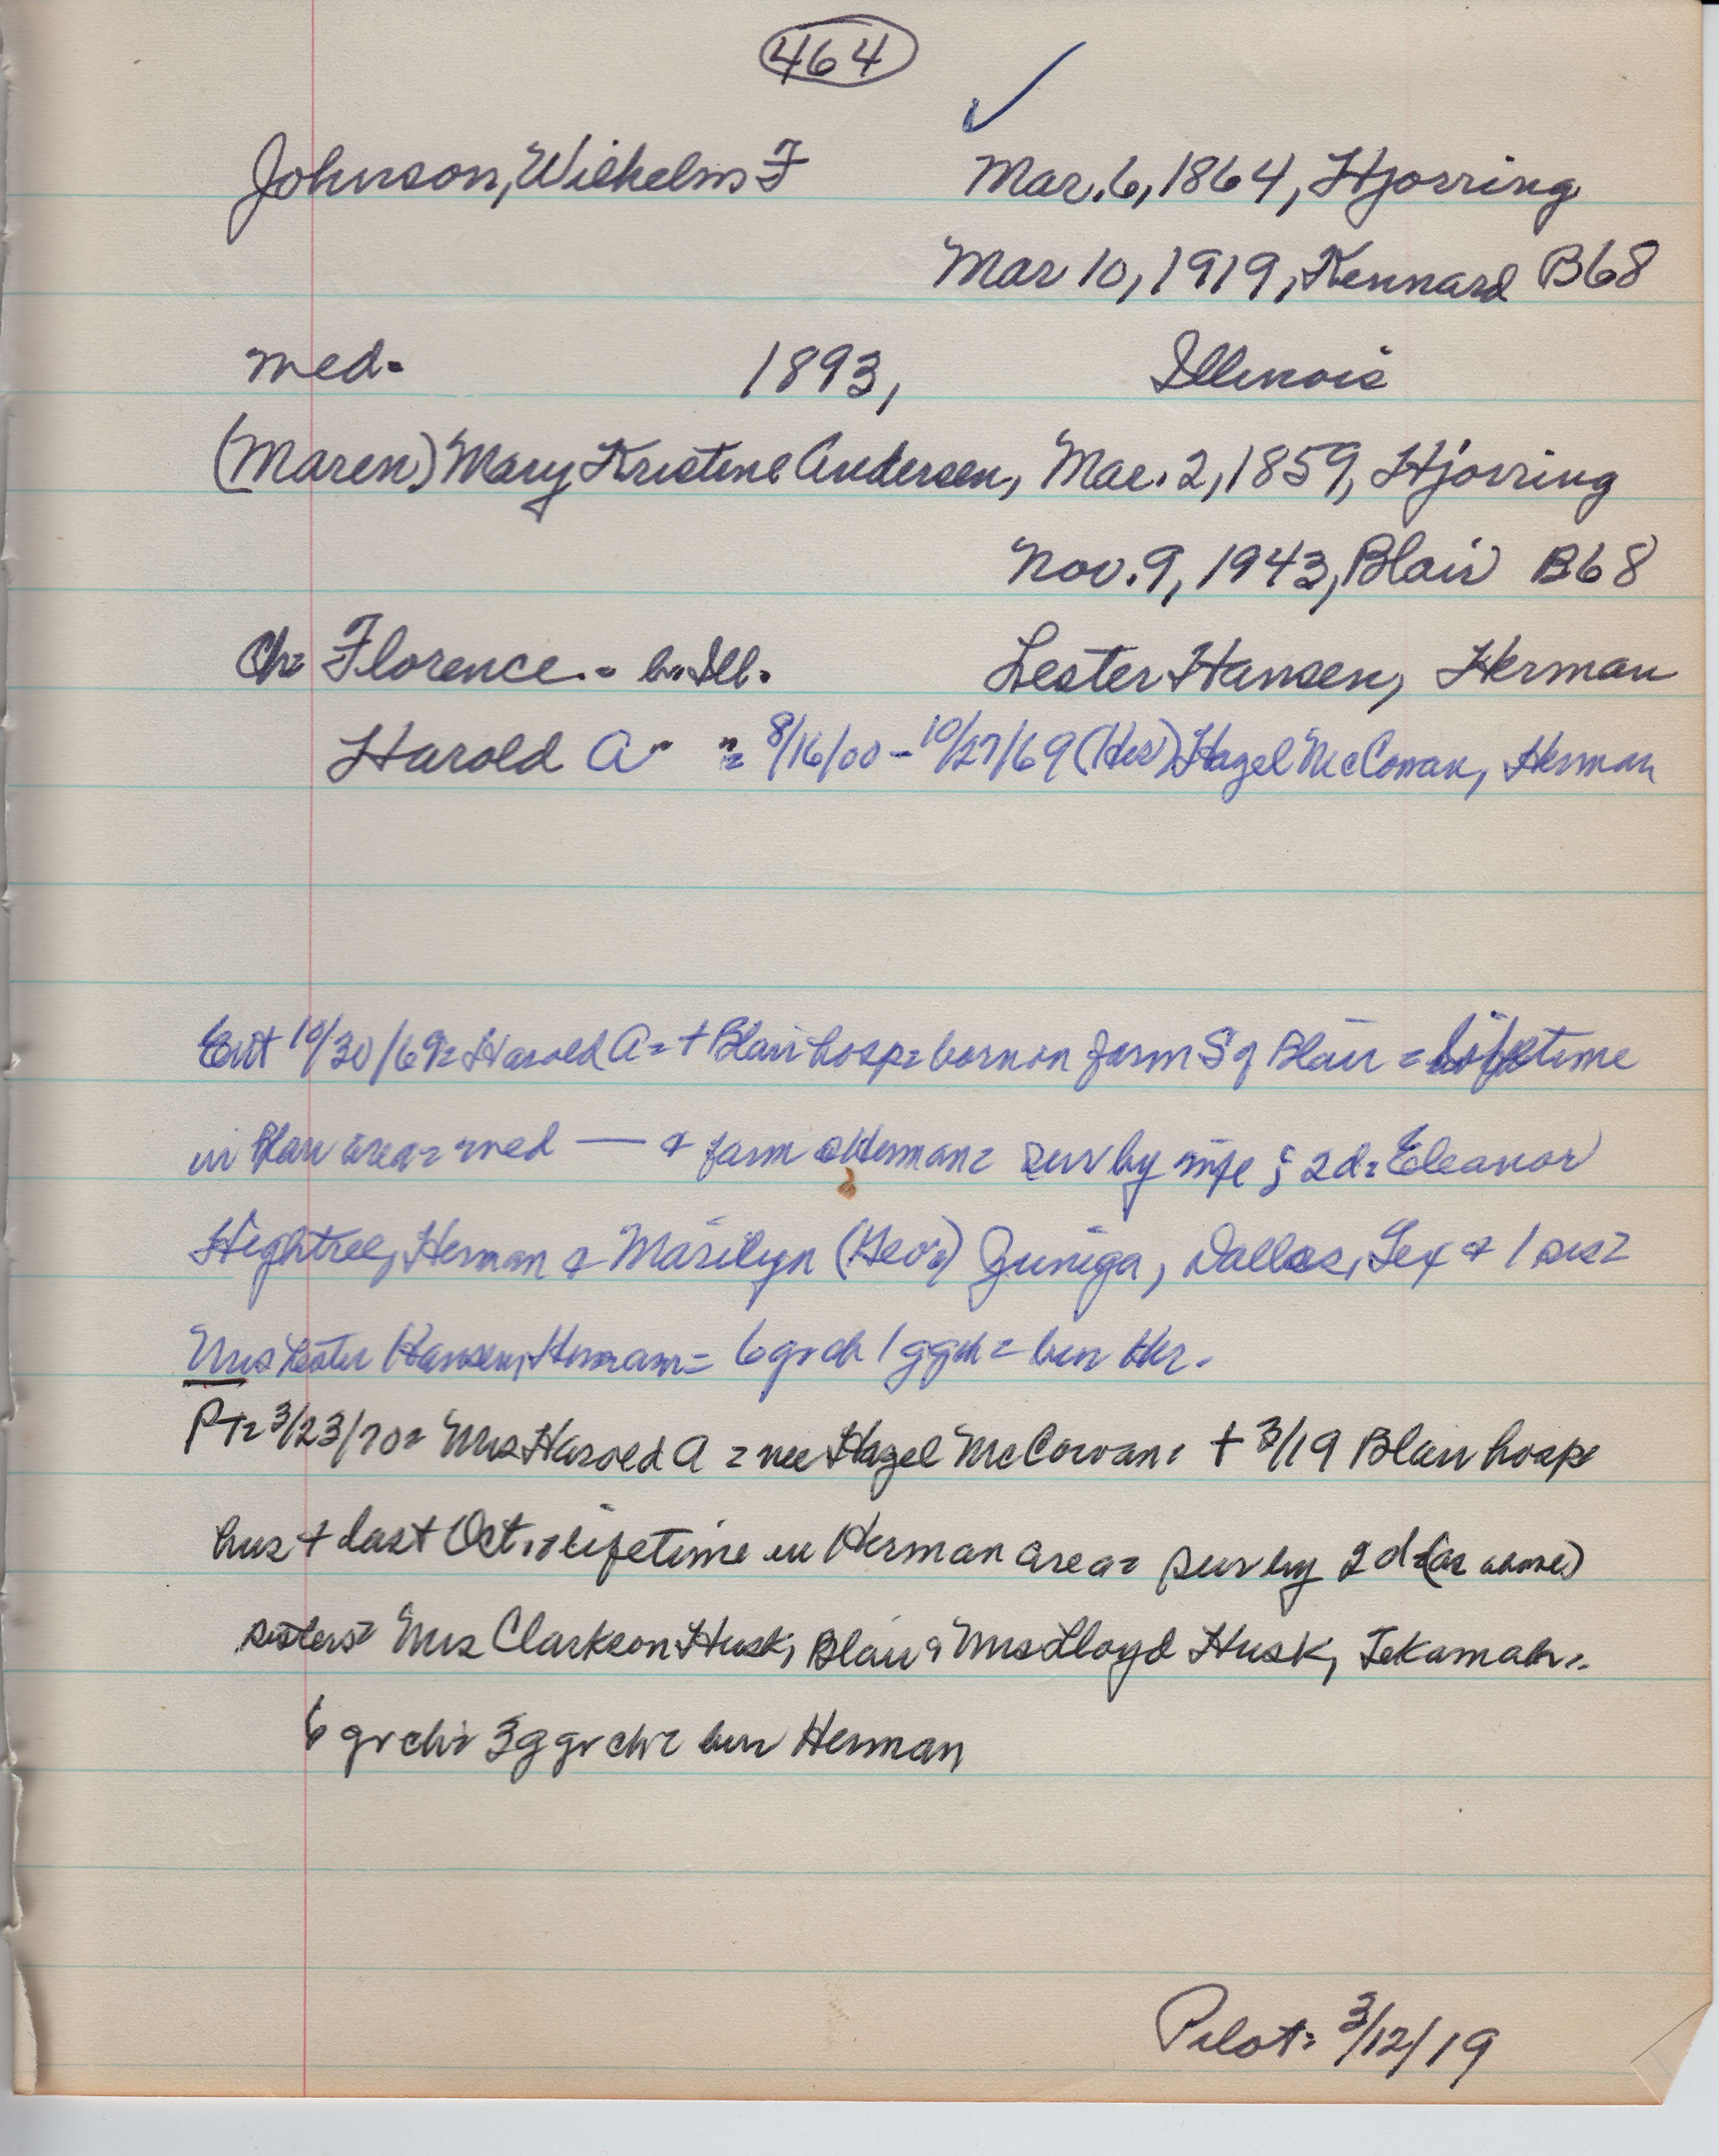 464
Johnson, Wilhelm F Mar. 6, 1864, Hjorring
Mar 10, 1919, Kennard B68
med. 1893, Illinois
(Maren) Mary Kristine Andersen, Mar. 2, 1859, Hjorring
Nov. 9, 1943, Blair B68
Ch= Florence - b. Ill. Lester Hansen, Herman
Harold A " "= 8/16/00 - 10/27/69 (Her) Hazel McCowan, Herman
Ent 10/30/69= Harold A = + Blair hosp= born on farm S of Blair = lifetime
in Blair area= med — & farm @ Herman= surv by wife & 2d= Eleanor
Hightree, Herman & Marilyn (Geo's) Zuniga, Dallas, Tex & 1 sis=
Mrs Lester Hansen, Herman= 6 grch 1 ggch = bur Her.
PT= 3/23/70= Mrs Harold A = nee Hazel McCowan= + 3/19 Blair hosp
hus + last Oct.= lifetime in Herman area= surv by 2 d=(as above)
sisters= Mrs Clarkson Husk, Blair & Mrs Lloyd Husk, Tekamah=
6 gr ch= 3 g gr ch= bur Herman
Pilot= 3/12/19